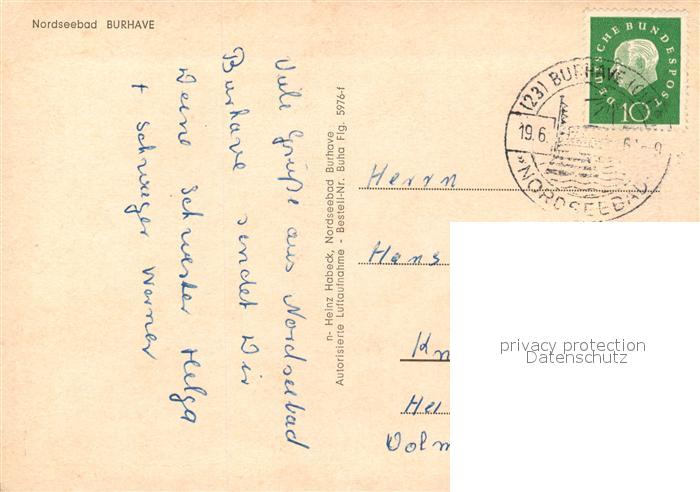 Nordseebad BURHAVE
Viele Grüße aus Nordseebad
Burhave sendet Dir
Deine Schwester Helga
+ Schwager Werner
n- Heinz Habeck, Nordseebad Burhave
Autorisierte Luftaufnahme - Bestell-Nr. Buha Flg. 5976-f
DEUTSCHE BUNDESPOST
10
(23) BURHAVE
19.6.
NORDSEEBA
Herrn
Hans
Kn
Hei
Volm
privacy protection
Datenschutz